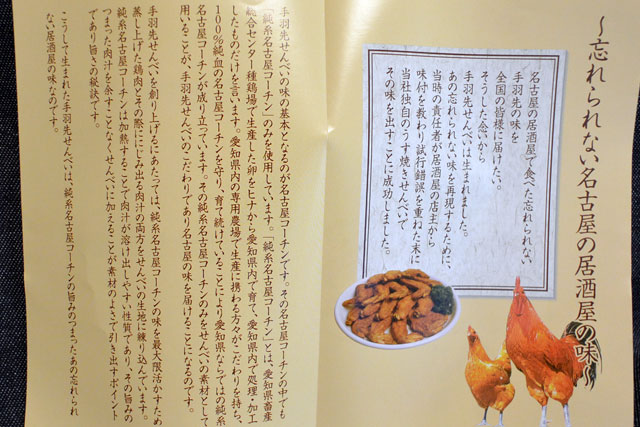 ～忘れられない名古屋の居酒屋の味～
名古屋の居酒屋で食べた忘れられない
手羽先の味を
全国の皆様に届けたい。
そうした念いから
手羽先せんべいは生まれました。
あの忘れられない味を再現するために、
当時の責任者が居酒屋の店主から
味付を教わり試行錯誤を重ねた末に
当社独自のうす焼きせんべいで
その味を出すことに成功しました。
手羽先せんべいの味の基本となるのが名古屋コーチンです。その名古屋コーチンの中でも
「純系名古屋コーチン」のみを使用しています。「純系名古屋コーチン」とは、愛知県畜産
総合センター種鶏場で生産した卵をヒナから愛知県内で育て、愛知県内で処理・加工
したものだけを言います。愛知県内の専用農場で生産に携わる方々がこだわりを持ち、
100%純血の名古屋コーチンを守り、育て続けていることにより愛知県ならではの純系
名古屋コーチンが成り立っています。その純系名古屋コーチンのみをせんべいの素材として
用いることが、手羽先せんべいのこだわりであり名古屋の味を届けることになるのです。
手羽先せんべいを創り上げるにあたっては、純系名古屋コーチンの味を最大限活かすため
蒸し上げた鶏肉とその際ににじみ出る肉汁の両方をせんべいの生地に練り込んでいます。
純系名古屋コーチンは加熱することで肉汁が溶け出しやすい性質であり、その旨みの
つまった肉汁を余すことなくせんべいに加えることが素材のよさで引き出すポイント
であり旨さの秘訣です。
こうして生まれた手羽先せんべいは、純系名古屋コーチンの旨みのつまったあの忘れられ
ない居酒屋の味なのです。